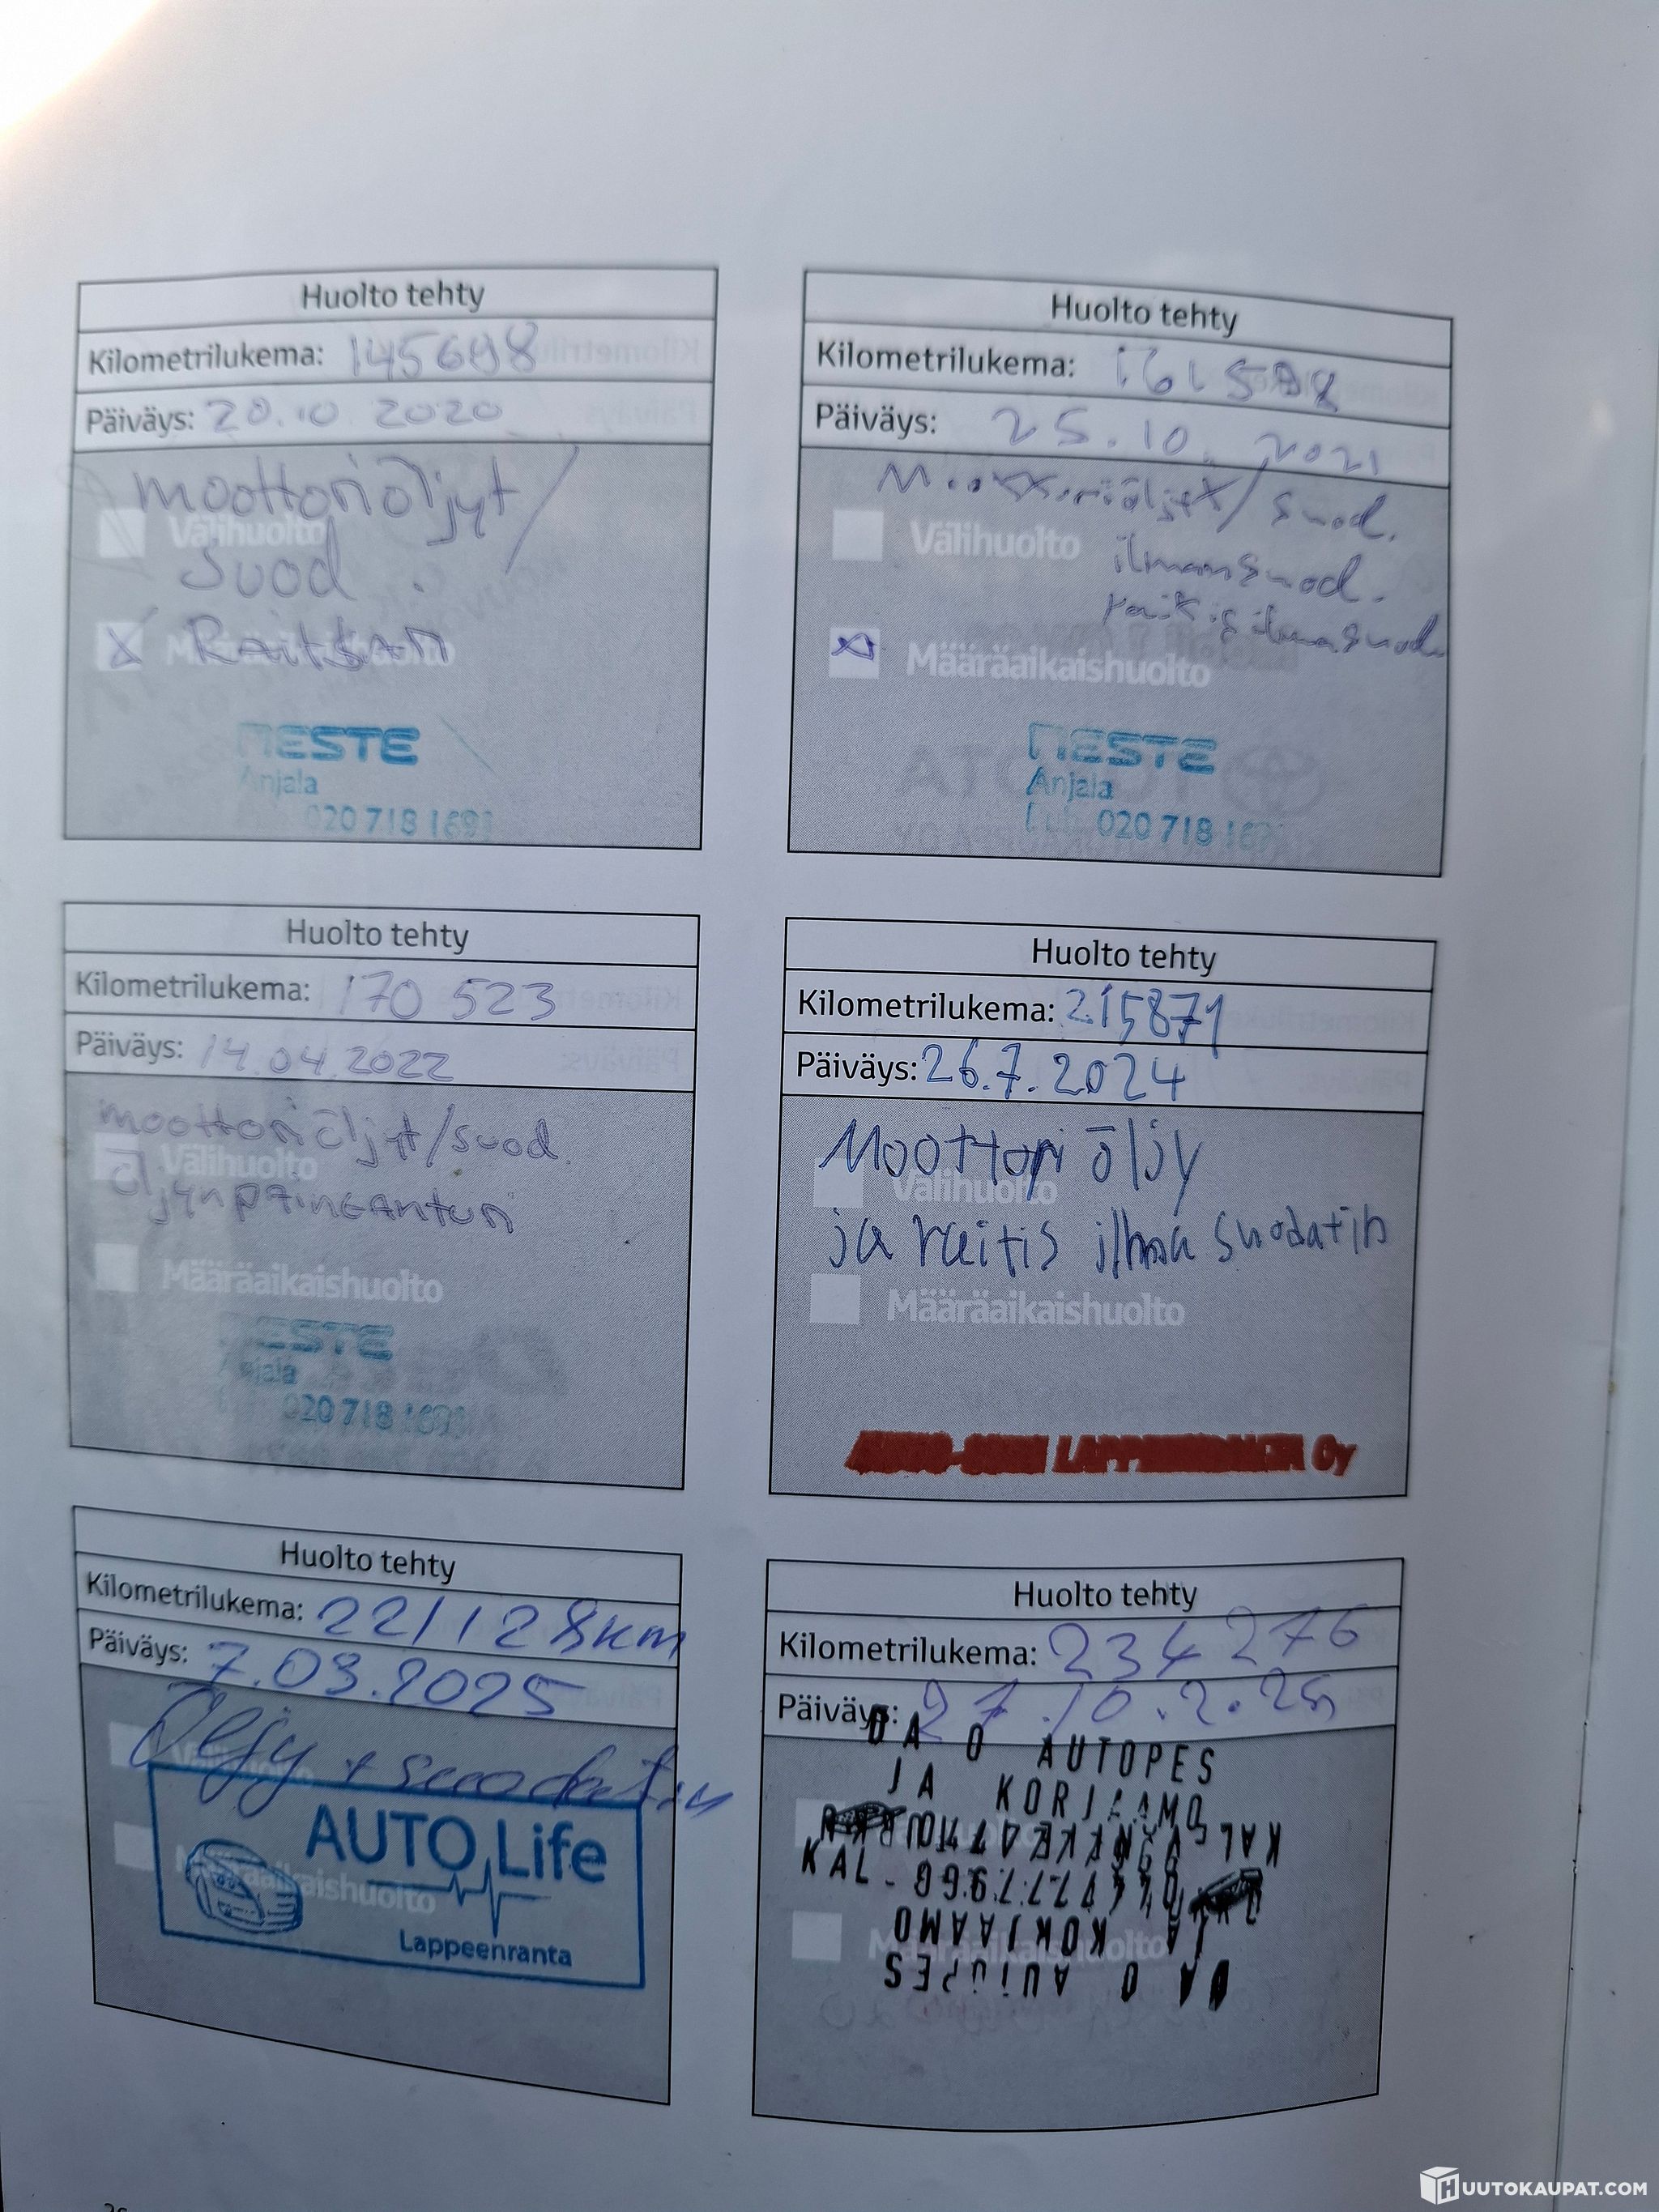 Huolto tehty
Kilometrilukema: 145698
Päiväys: 20.10 2020
moottoriöljyt/
Välihuolto
suod.
X Raitsan
Määräaikaishuolto
NESTE
Anjala
020 718 169
Huolto tehty
Kilometrilukema: 161 592
Päiväys: 25.10.2021
Moottoriöljyt/suod.
Välihuolto
ilmansuod.
raitisilmasuod.
X Määräaikaishuolto
NESTE
Anjala
020 718 16
Huolto tehty
Kilometrilukema: 170 523
Päiväys: 14.04.2022
moottoriöljyt/suod.
Välihuolto
öljynpaineanturi
Määräaikaishuolto
NESTE
Anjala
020 718 169
Huolto tehty
Kilometrilukema: 215871
Päiväys: 26.7.2024
Moottori öljy
Välihuolto
ja raitis ilma suodatin
Määräaikaishuolto
LAPPEENRANTA Oy
Huolto tehty
Kilometrilukema: 221128km
Päiväys: 7.03.2025
Öljy + suodatin
Välihuolto
AUTO Life
Määräaikaishuolto
Lappeenranta
Huolto tehty
Kilometrilukema: 234 276
Päiväys: 27.10.2.25
DA O AUTOPES
JA KORJAAMO
KAL
KAL-
JA KORJAAMO
Määräaikaishuolto
DA O AUTOPES
HUUTOKAUPAT.COM